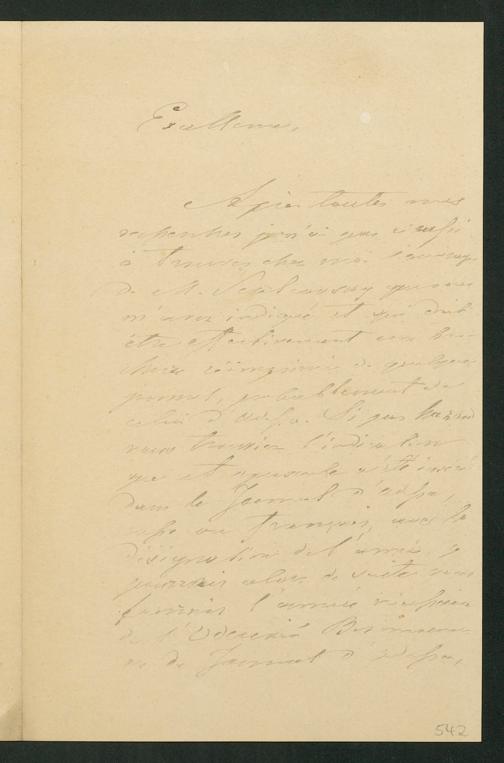 Excellence,
Après toutes mes
recherches je n'ai pas réussi
à trouver chez moi l'ouvrage
de M. que vous
m'avez indiqué et qui doit
être effectivement une bro-
chure réimprimée de quelque
journal, probablement de
celui d'Odessa. Si par hazard
vous trouviez l'indication
que cet opuscule a été inséré
dans le Journal d'Odessa,
russe ou français, avec la
désignation de l'année, je
pourrais alors de suite vous
fournir l'année
de l'
ou du Journal d'Odessa,
542